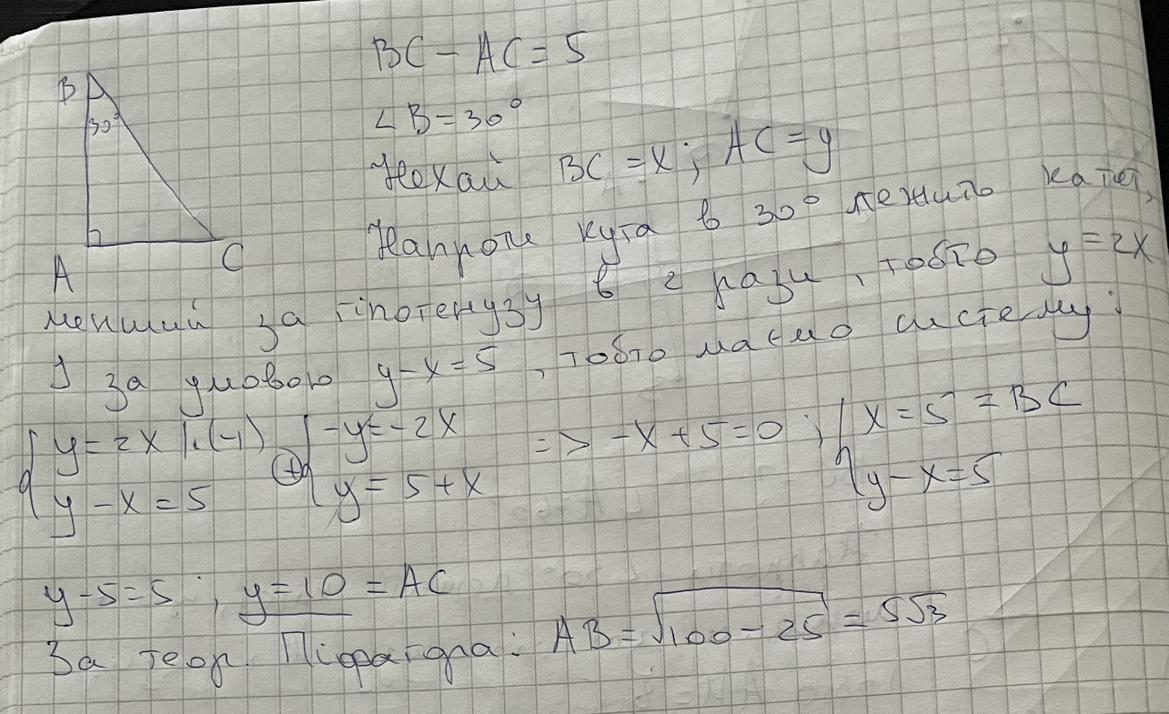 BC - AC = 5
B
30°
∠B = 30°
Нехай BC = x; AC = y
Напроти кута в 30° лежить катет,
A
C
менший за гіпотенузу в 2 рази, тобто y = 2x
І за умовою y - x = 5, тобто маємо систему:
{ y = 2x | · (-1) ⊕ { -y = -2x => -x + 5 = 0; { x = 5 = BC
y - x = 5 y = 5 + x y - x = 5
y - 5 = 5; y = 10 = AC
За теор. Піфагора: AB = √100 - 25 = 5√3